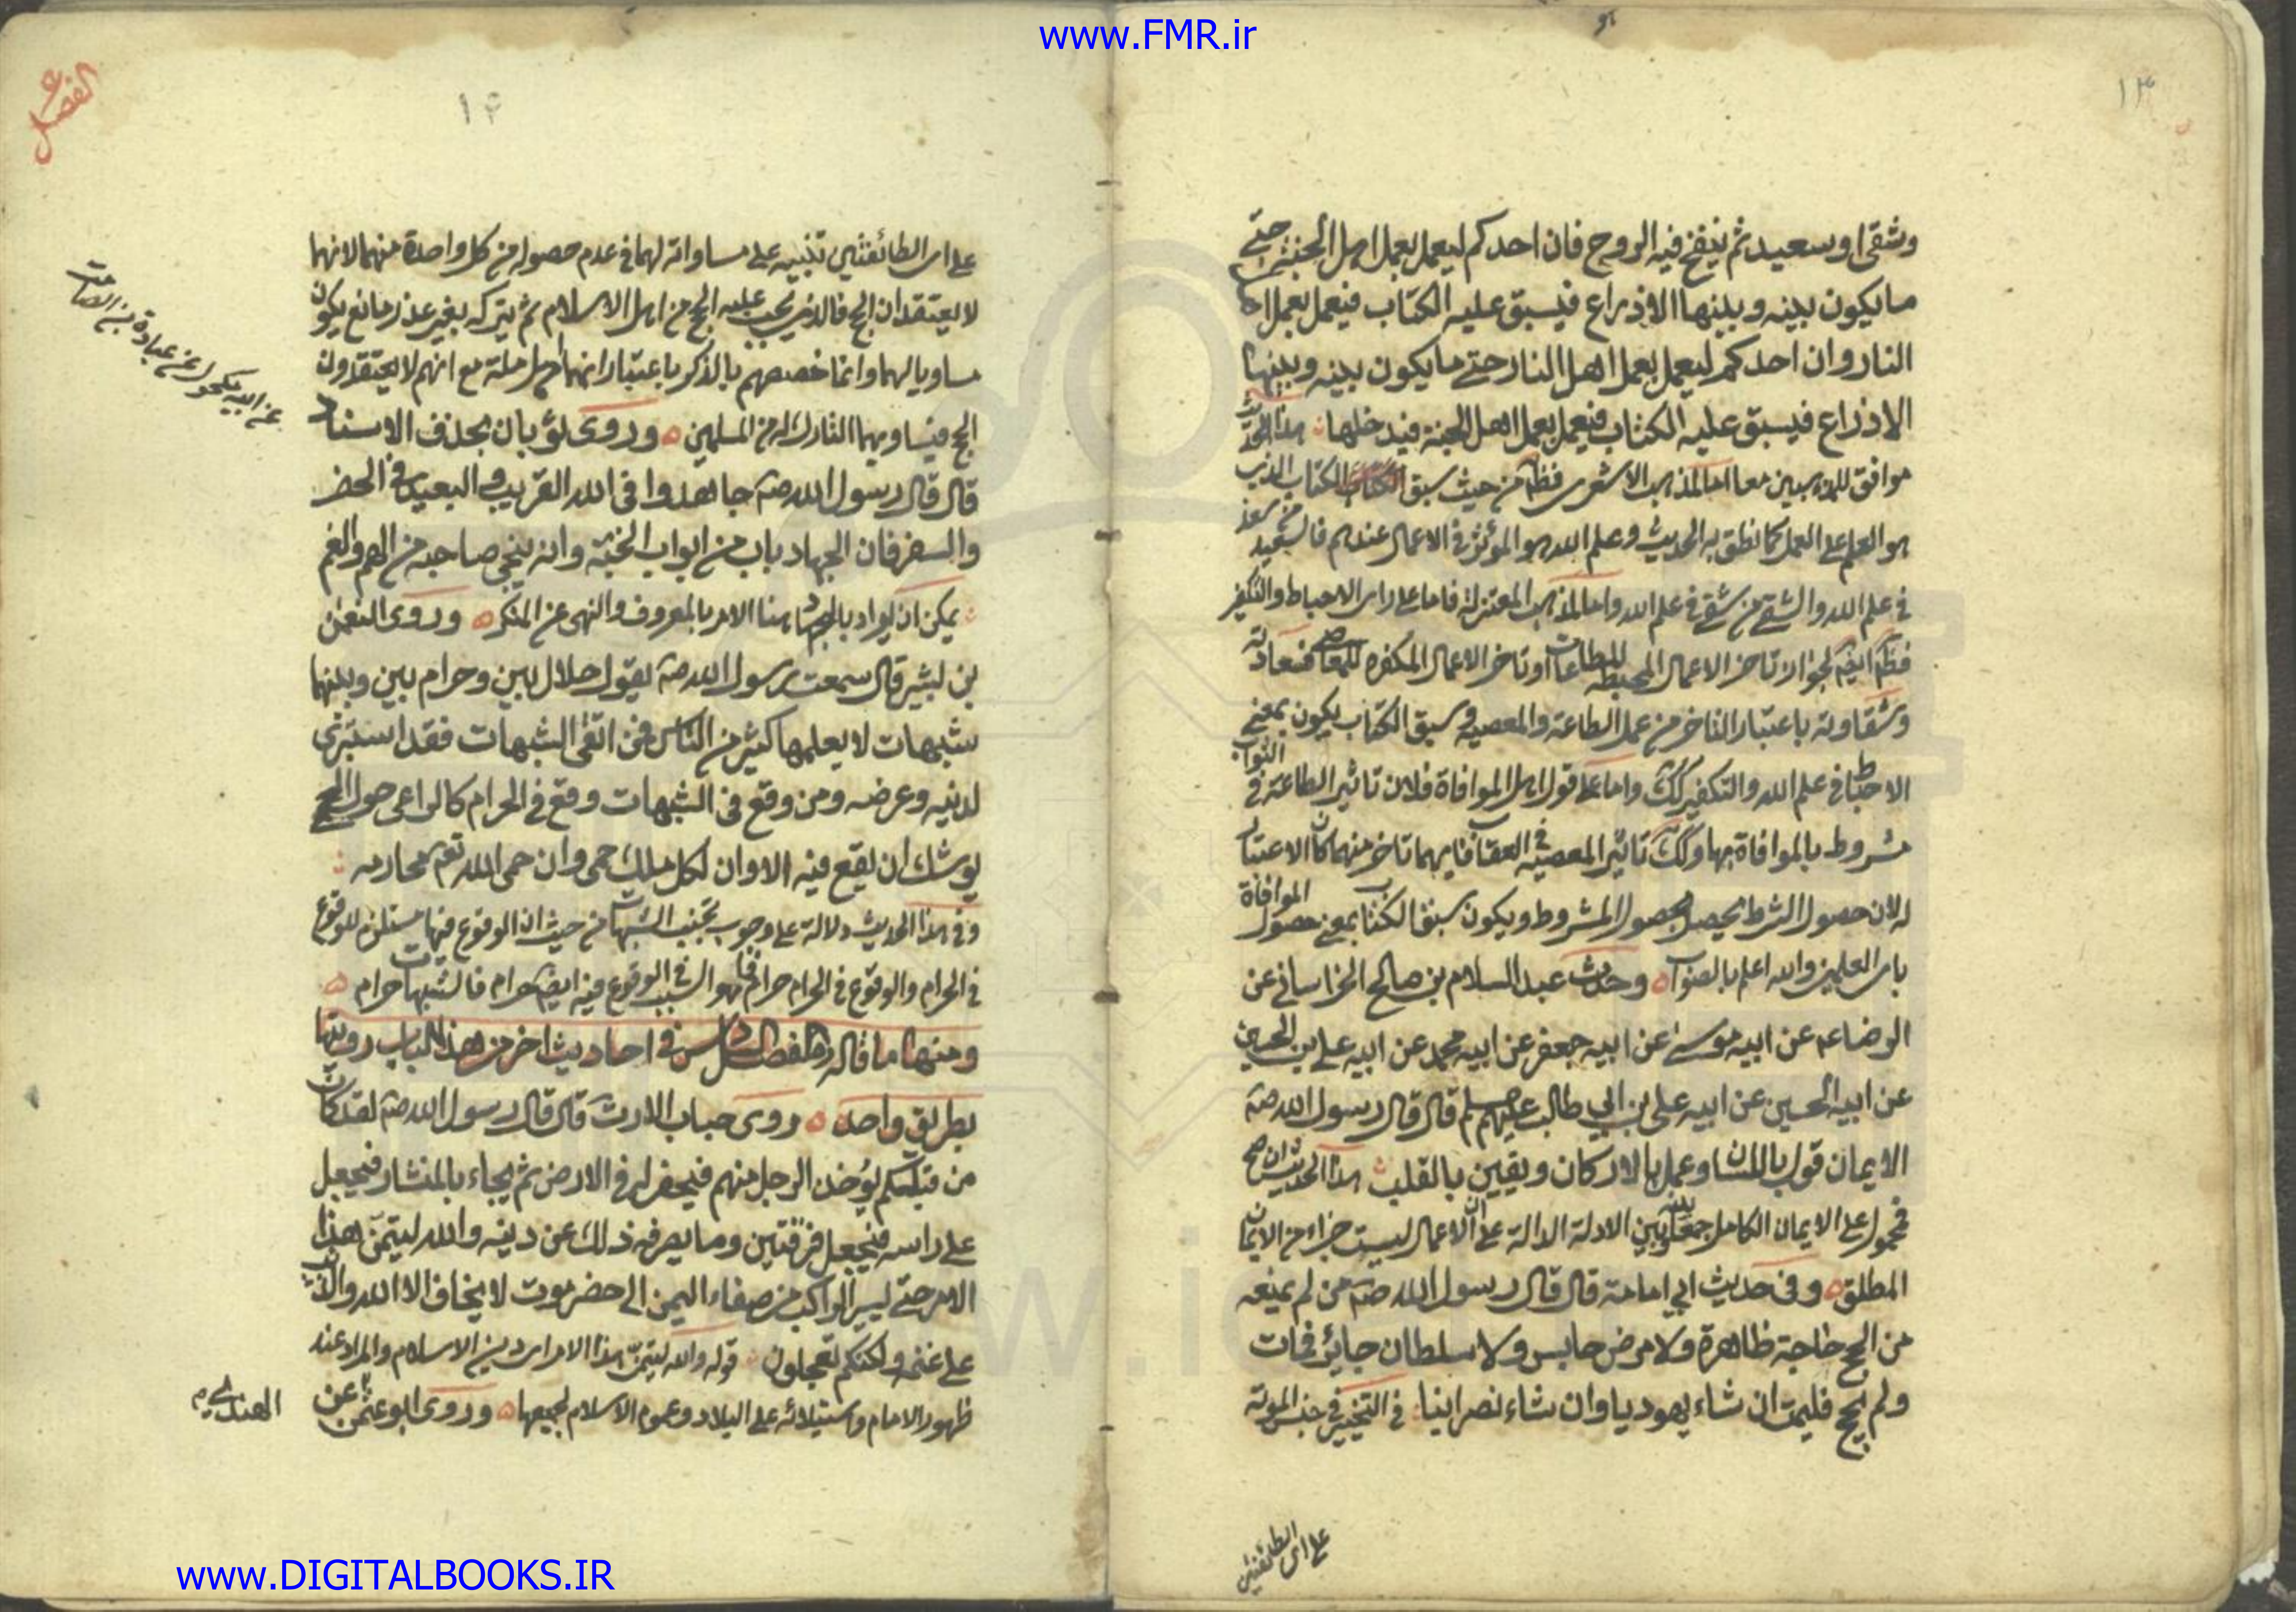 www.FMR.ir
١٣
وشقى او سعيد ثم ينفخ فيه الروح فان احدكم ليعمل بعمل اهل الجنة حتى
ما يكون بينه وبينها الا ذراع فيسبق عليه الكتاب فيعمل بعمل اهل
النار وان احدكم ليعمل بعمل اهل النار حتى ما يكون بينه وبينها
الا ذراع فيسبق عليه الكتاب فيعمل بعمل اهل الجنة فيدخلها هذا الحديث
موافق للمذهبين معا اما لمذهب الاشعرى فظ من حيث سبق الكتاب الكتاب الذى
هو العلم على العمل كما نطق به الحديث وعلم الله هو المؤثر فى الاعمال عندهم فالسعيد من سعد
فى علم الله والشقى من شقى فى علم الله واما لمذهب المعتزلة فاما على راى الاحباط والتكفير
فظ ايض لجواز تاخر الاعمال المحبطة للطاعات او تاخر الاعمال المكفره للمعاصى فسعادته
وشقاوته باعتبار التاخر من عمل الطاعة والمعصية وسبق الكتاب يكون بمعنى
الاحباط فى علم الله والتكفير كك واما على قول اهل الموافاة فلان تاثير الطاعة فى الثواب
مشروط بالموافاة بها وكك تاثير المعصية فى العقاب فايهما تاخر منهما كان الاعتبار
له لان حصول الشرط يحصل لحصول المشروط ويكون سبق الكتاب بمعنى حصول الموافاة
باى العلمين والله اعلم بالصواب وحديث عبد السلام بن صالح الخراسانى عن
الرضا عم عن ابيه موسى عن ابيه جعفر عن ابيه محمد عن ابيه على بن الحسين
عن ابيه الحسين عن ابيه على بن ابي طالب عليهم سلم قال قال رسول الله صه
الايمان قول باللسان وعمل بالاركان ويقين بالقلب هذا الحديث ان صح
فمحمول على الايمان الكامل جمعا بينه وبين الادلة الدالة على ان الاعمال ليست جزاء من الايمان
المطلق وفى حديث ابي امامة قال قال رسول الله صه من لم يمنعه
من الحج حاجة ظاهرة ولا مرض حابس ولا سلطان جاير فمات
ولم يحج فليمت ان شاء يهوديا وان شاء نصرانيا فى التخيير فى جنس الموتة
على اى الطائفتين
١٤
الفصل
على اى الطائفتين تنبيه على مساواته لهما فى عدم حصوله من كل واحدة منهما لانهما
لا يعتقدان الحج فالذى يجب عليه الحج من اهل الاسلام ثم يتركه بغير عذر مانع يكون
مساويا لهما وانما خصصهم بالذكر باعتبار انهما اهل ملة مع انهم لا يعتقدون
الحج فيساويهما التارك له من المسلمين وروى ثوبان بحذف الاسناد
قال قال رسول الله صه جاهدوا فى الله القريب والبعيد فى الحضر
والسفر فان الجهاد باب من ابواب الجنة وانه ينجى صاحبه من الهم والغم
يمكن ان يراد بالجهاد هنا الامر بالمعروف والنهى عن المنكر وروى النعمن
بن بشير قال سمعت رسول الله صه يقول حلال بين وحرام بين وبينهما
شبهات لا يعلمها كثير من الناس فمن اتقى الشبهات فقد استبرى
لدينه وعرضه ومن وقع فى الشبهات وقع فى الحرام كالراعى حول الحمى
يوشك ان يقع فيه الا وان لكل ملك حمى وان حمى الله تعم محارمه
وفى هذا الحديث دلالة على وجوب تجنب الشبهات من حيث ان الوقوع فيها مستلزم للوقوع
فى الحرام والوقوع فى الحرام حرام فما هو السبب فى الوقوع فيه ايض حرام فالشبهات حرام
ومنها ما قاله فى الفصل السادس فى احاديث اخر من هذا الباب رويتها
بطريق واحد روى خباب الارت قال قال رسول الله صه لقد كان
من قبلكم يؤخذ الرجل منهم فيحفر له فى الارض ثم يجاء بالمنشار فيجعل
على راسه فيجعل فرقتين وما يصرفه ذلك عن دينه والله ليتمن هذا
الامر حتى يسير الراكب من صنعاء اليمن الى حضرموت لا يخاف الا الله والذئب
على غنمه ولكنكم تعجلون قوله والله ليتمن هذا الامر اى دين الاسلام والمراد عند
ظهور الامام واستيلائه على البلاد وعموم الاسلام لجميعها وروى ابو عثمن عن
عن ابيه مكحول عن عبادة بن الصامت
www.DIGITALBOOKS.IR